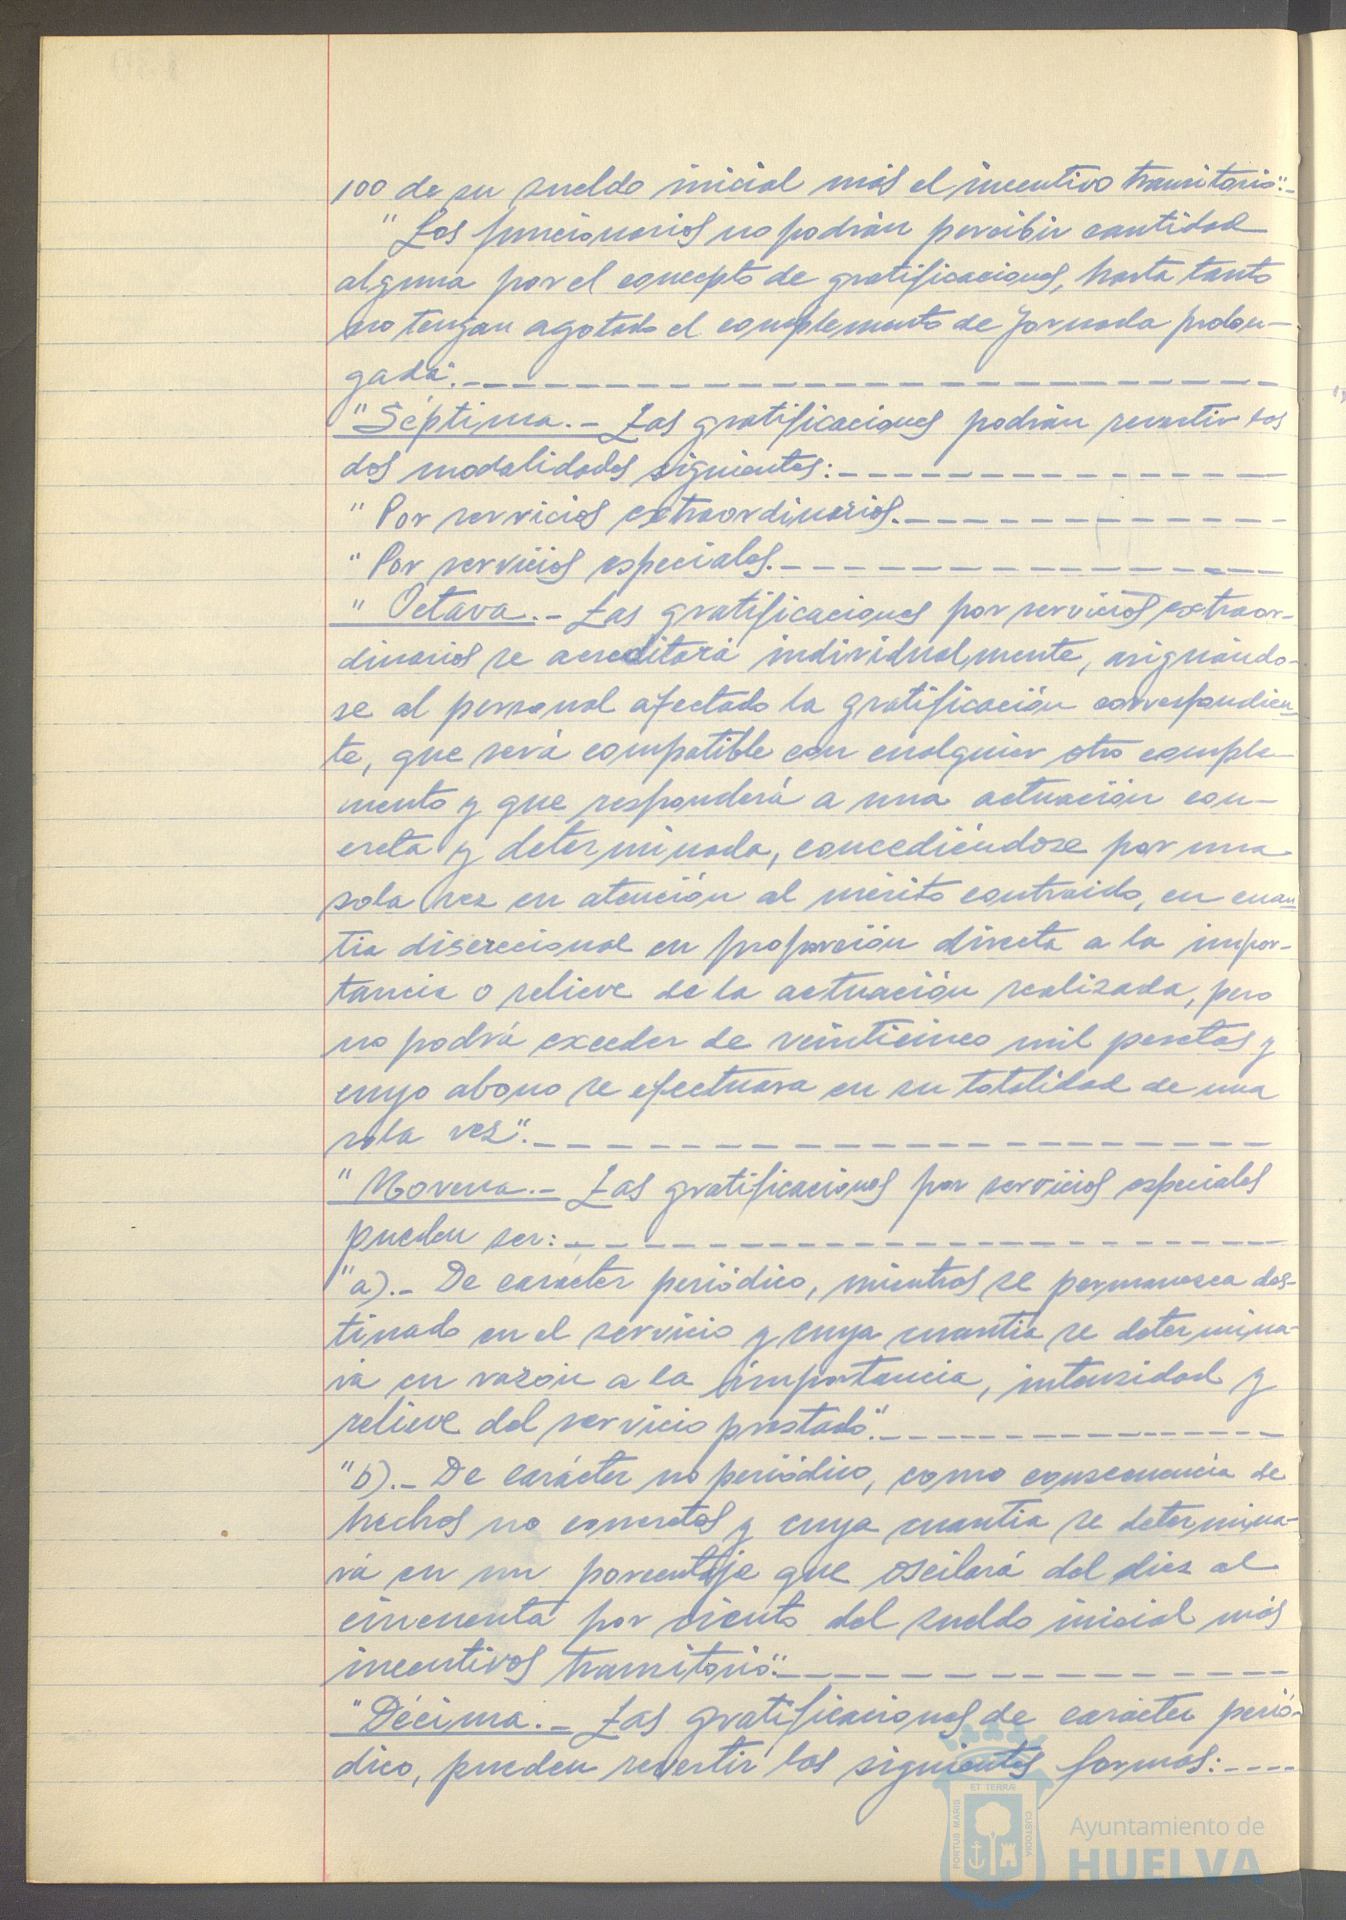 100 de su sueldo inicial más el incentivo transitorio".-
" Los funcionarios no podrán percibir cantidad
alguna por el concepto de gratificaciones, hasta tanto
no tengan agotado el complemento de jornada prolon-
gada".- - - - - - - - - - - - - - - - - - - - - -
"Séptima.- Las gratificaciones podrán revertir las
dos modalidades siguientes:- - - - - - - - - - - -
" Por servicios extraordinarios.- - - - - - - - - -
" Por servicios especiales.- - - - - - - - - - - - -
" Octava.- Las gratificaciones por servicios extraor-
dinarios se acreditará individualmente, asignándo-
se al personal afectado la gratificación correspondien-
te, que será compatible con cualquier otro comple-
mento y que responderá a una actuación con-
creta y determinada, concediéndose por una
sola vez en atención al mérito contraido, en cuan-
tia discreccional en proporción directa a la impor-
tancia o relieve de la actuación realizada, pero
no podrá exceder de veinticinco mil pesetas y
cuyo abono se efectuara en su totalidad de una
sola vez".- - - - - - - - - - - - - - - - - - - -
"Novena.- Las gratificaciones por servicios especiales
pueden ser:- - - - - - - - - - - - - - - - - - - -
"a).- De carácter periódico, mientras se permanezca des-
tinado en el servicio y cuya cuantia se determina-
rá en razón a la importancia, intensidad y
relieve del servicio prestado".- - - - - - - - - - -
"b).- De carácter no periódico, como consecuencia de
hechos no concretos y cuya cuantia se determina-
rá en un porcentaje que oscilará del diez al
cincuenta por ciento del sueldo inicial más
incentivos transitorio".- - - - - - - - - - - - - -
"Décima.- Las gratificaciones de carácter perió-
dico, pueden revertir las siguientes formas:- - - -
PORTUS MARIS
ET TERRÆ
CUSTODIA
Ayuntamiento de
HUELVA